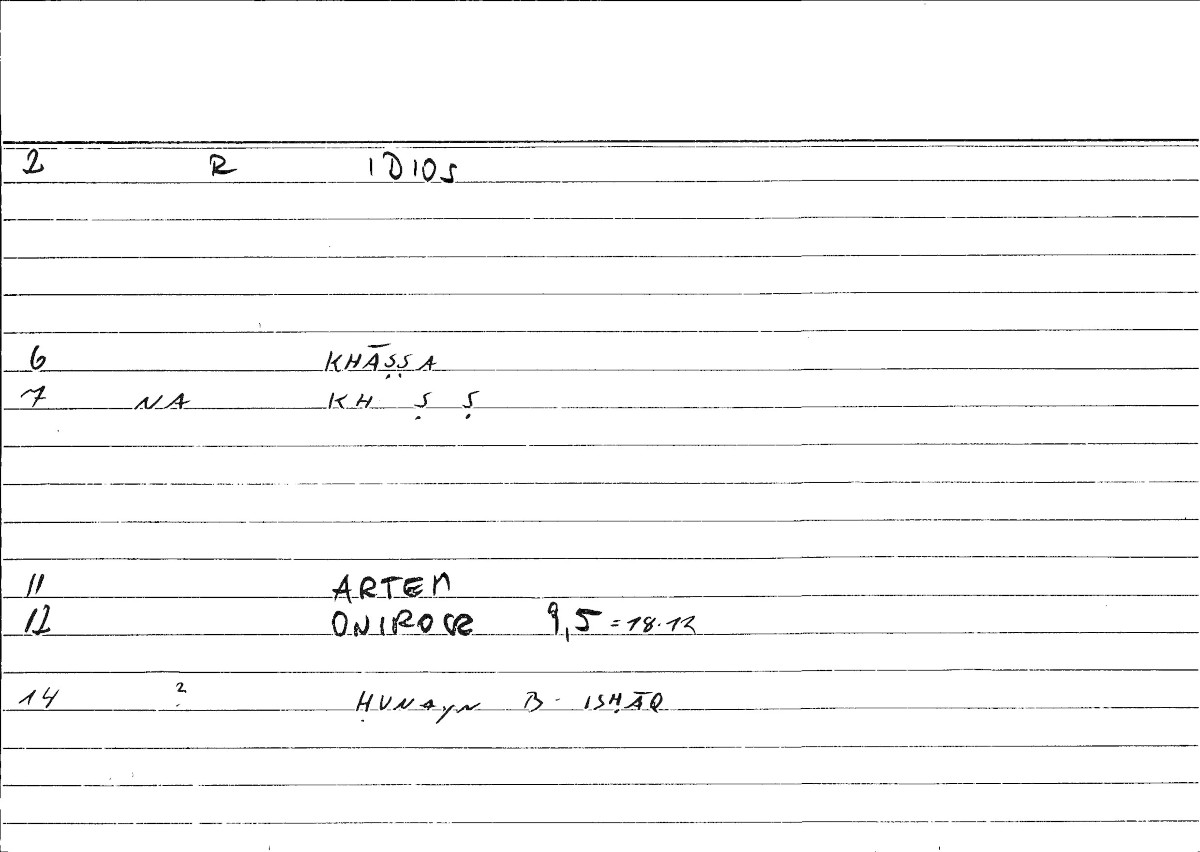 2 R IDIOS
6 KHĀṢṢA
7 NA KH Ṣ Ṣ
11 ARTEM
12 ONIROCR 9,5 = 18.12
14 ? ḤUNAyN B. ISḤĀQ